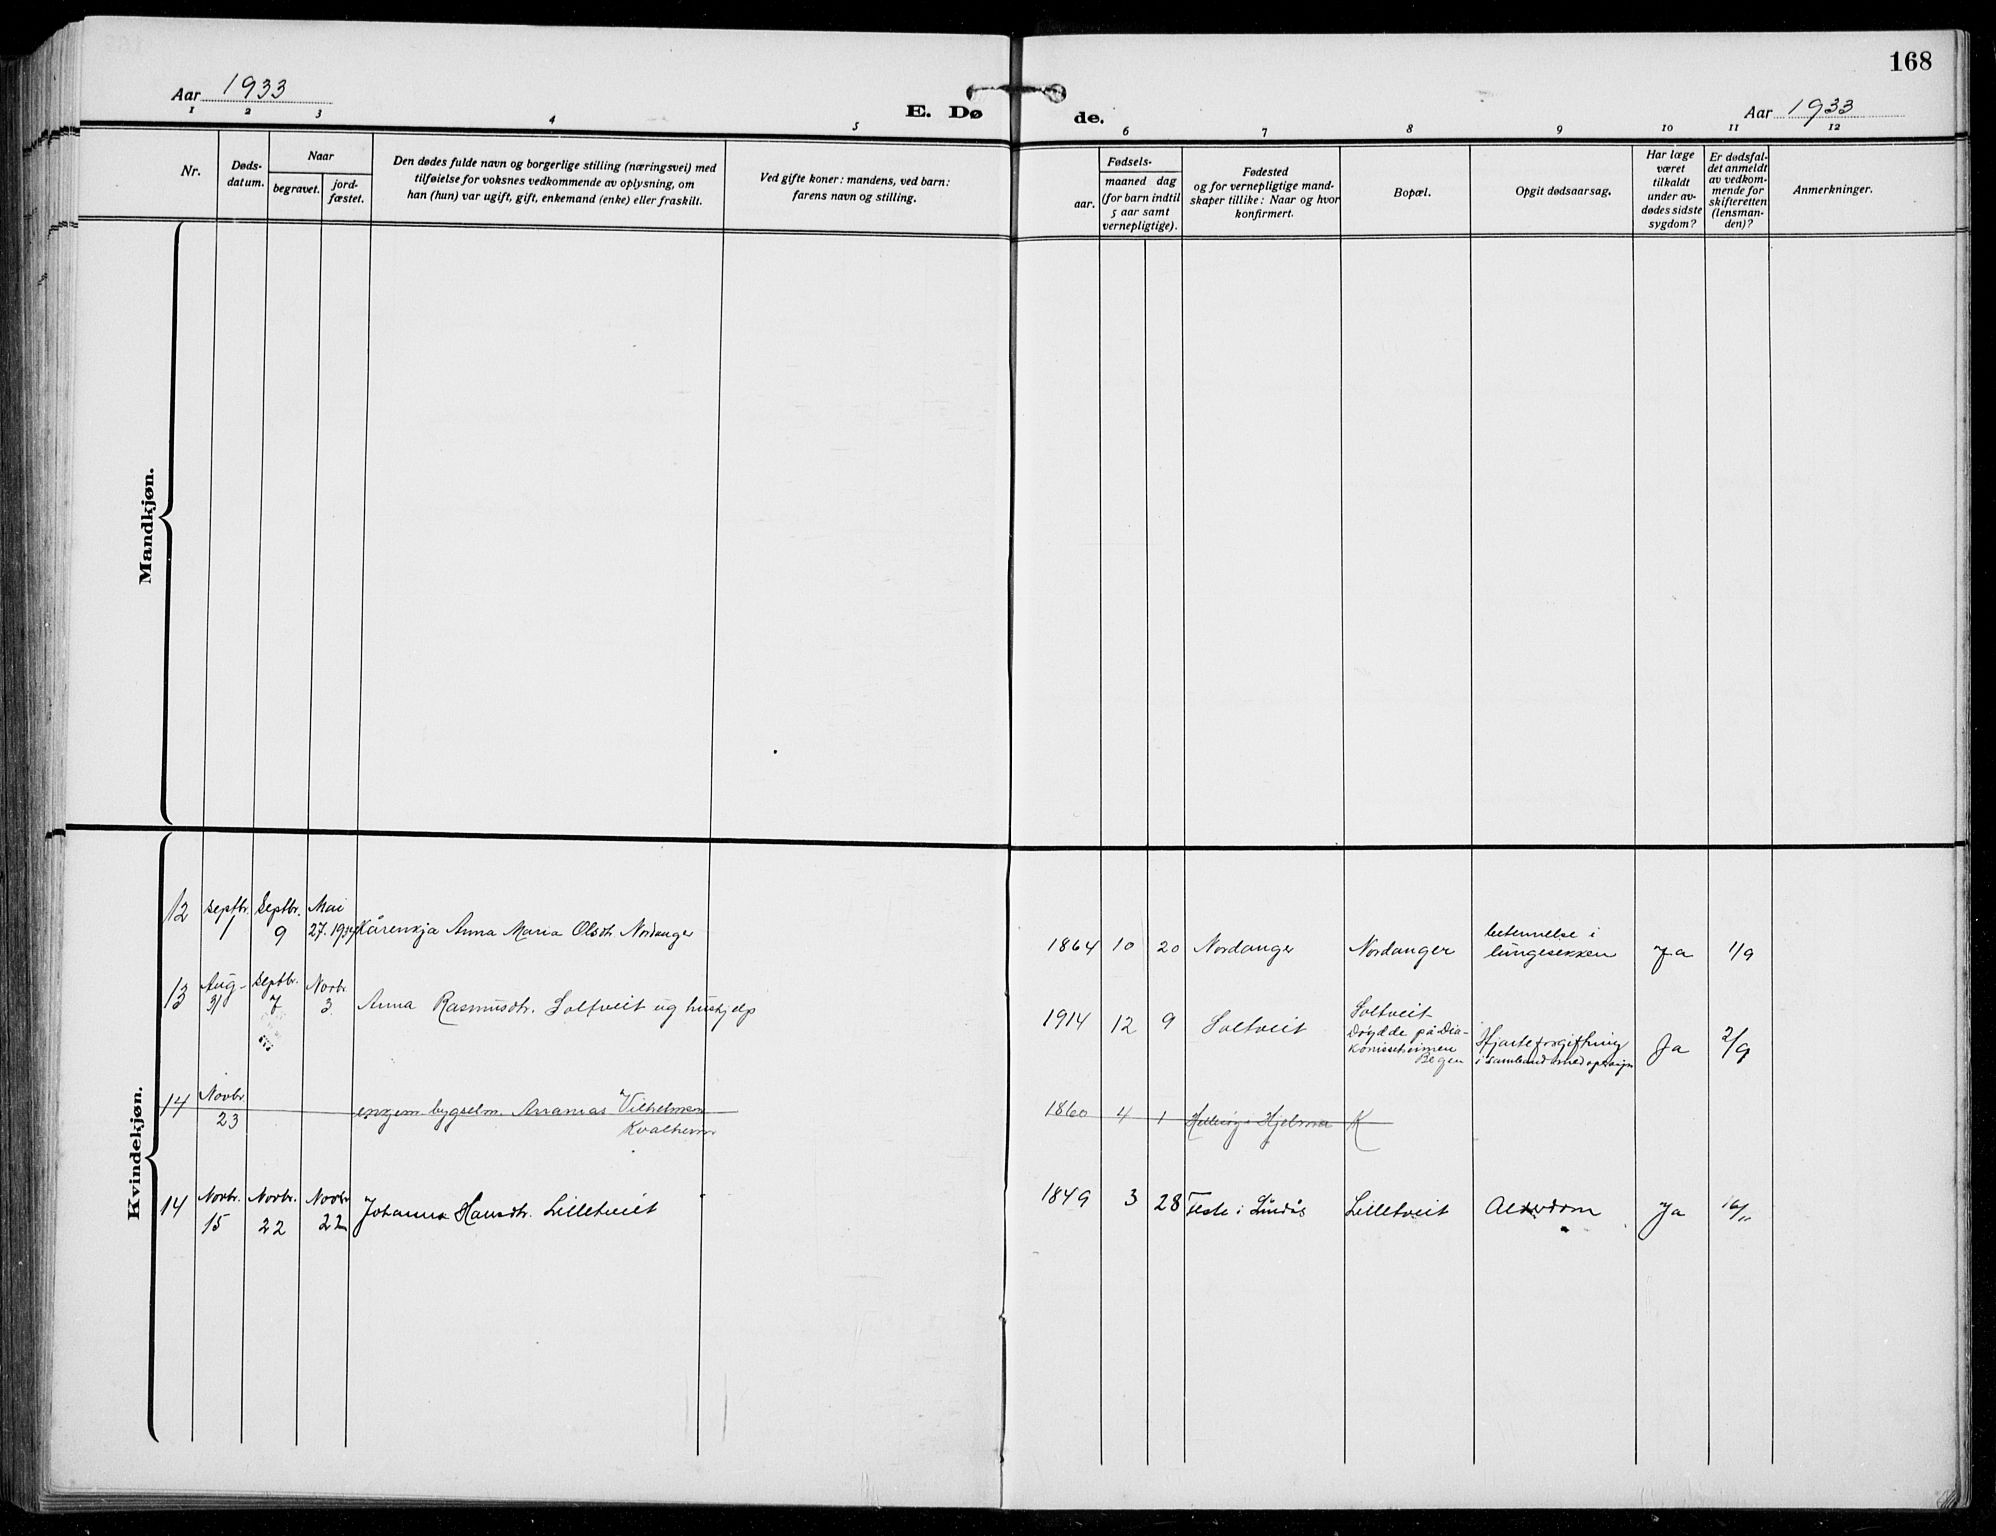 168
Aar 1933
E. Døde.
Aar 1933
1 2 3 4 5 6 7 8 9 10 11 12
Nr.
Døds-
datum.
Naar
begravet.
jord-
fæstet.
Den dødes fulde navn og borgerlige stilling (næringsvei) med
tilføielse for voksnes vedkommende av oplysning, om
han (hun) var ugift, gift, enkemand (enke) eller fraskilt.
Ved gifte koner: mandens, ved barn:
farens navn og stilling.
Fødsels-
aar.
maaned dag
(for barn indtil
5 aar samt
vernepligtige).
Fødested
og for vernepligtige mand-
skaper tillike: Naar og hvor
konfirmert.
Bopæl.
Opgit dødsaarsag.
Har læge
været
tilkaldt
under av-
dødes sidste
sygdom?
Er dødsfal-
det anmeldt
av vedkom-
mende for
skifteretten
(lensman-
den)?
Anmerkninger.
Mandkjøn.
Kvindekjøn.
12 Septbr. 1 Septbr. 9 Mai 27. 1934 Kårenkja Anna Maria Olsdtr. Nordanger 1864 10 20 Nordanger Nordanger betennelse i
lungesekken Ja 1/9
13 Aug. 31 Septbr. 7 Novbr. 3. Anna Rasmusdtr. Soltveit ug hushjelp 1914 12 9 Soltveit Soltveit
Døydde på Dia-
konisseheimen
Bergen
Hjarteforgiftning
i samband med operasjon Ja 2/9
14 Novbr. 23 enkjem. bygselm. Ananias Vilhelmsen
Kvalheim 1860 4 1 Hellesøy i Hjelma K
14 Novbr. 15 Novbr. 22 Novbr. 22 Johanna Hansdtr. Lilletveit 1849 3 28 Feste i Lindås Lilletveit Alderdom Ja 16/11